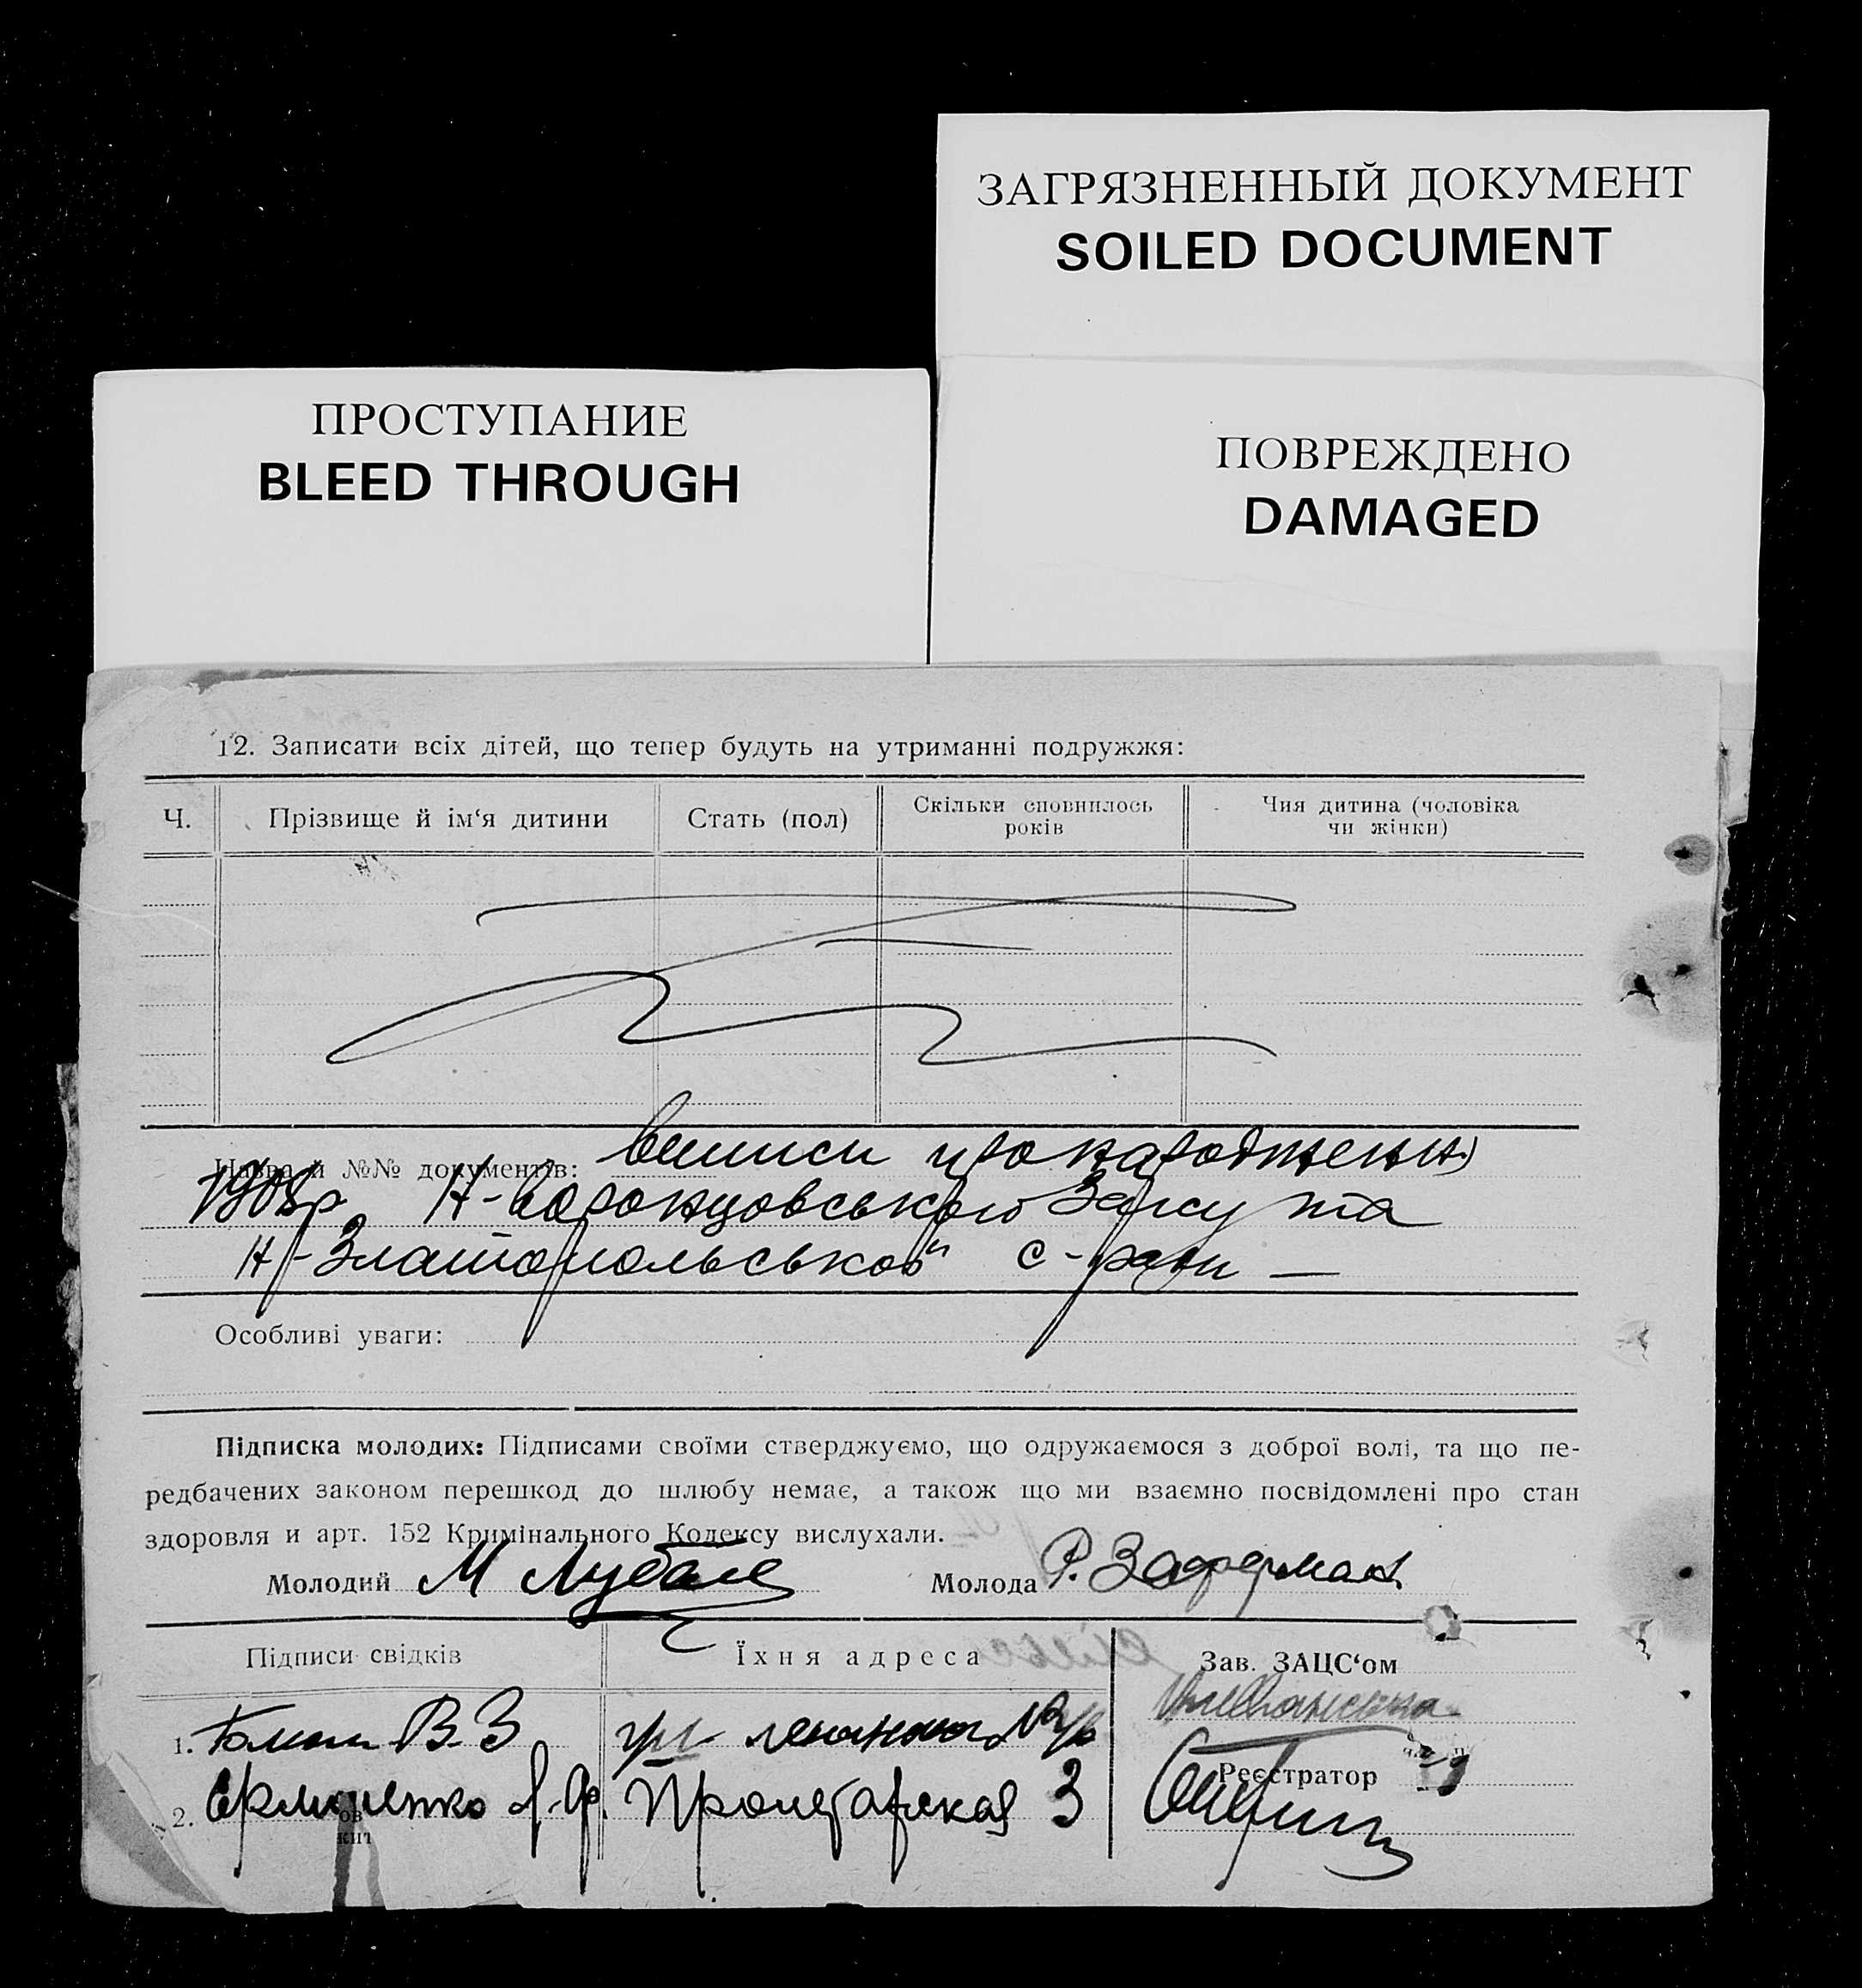 ЗАГРЯЗНЕННЫЙ ДОКУМЕНТ
SOILED DOCUMENT
ПРОСТУПАНИЕ
BLEED THROUGH
ПОВРЕЖДЕНО
DAMAGED
12. Записати всіх дітей, що тепер будуть на утриманні подружжя:
Ч.
Прізвище й ім‘я дитини
Стать (пол)
Скільки сповнилось
років
Чия дитина (чоловіка
чи жінки)
Назва й №№ документів: виписи про народження
1908р Н-Воронцовського Загсу та
Н-Златопольської с-ради —
Особливі уваги:
Підписка молодих: Підписами своїми стверджуємо, що одружаємося з доброї волі, та що пе-
редбачених законом перешкод до шлюбу немає, а також що ми взаємно посвідомлені про стан
здоровля и арт. 152 Кримінального Кодексу вислухали.
Молодий М
Молода Р. Заферман
Підписи свідків
Їхня адреса
Зав. ЗАЦС‘ом
1. В З
Реєстратор
2. Пролетарская 3